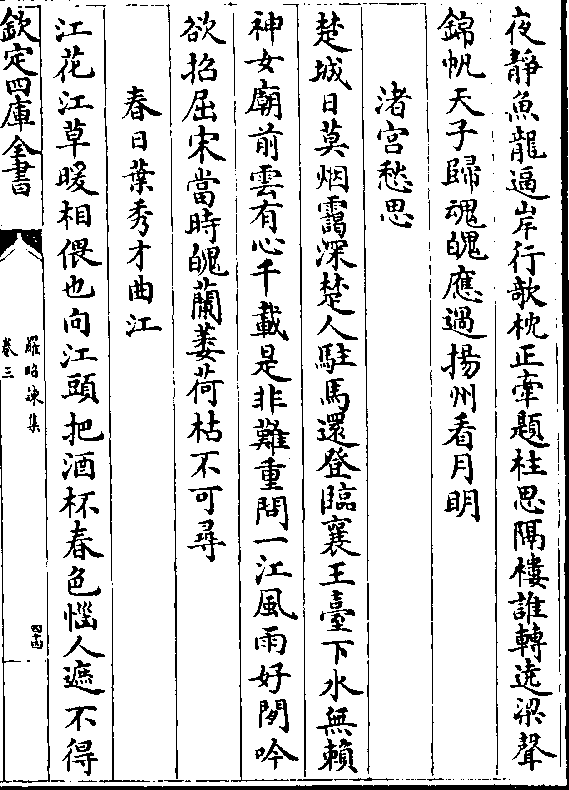 夜靜魚龍逼岸行欹枕正牽題柱思隔樓誰轉遶梁聲
錦帆天子歸魂魄應過揚州看月明
渚宮愁思
楚城日莫烟靄深楚人駐馬還登臨襄王臺下水無賴
神女廟前雲有心千載是非難重問一江風雨好閒吟
欲招屈宋當時魄蘭萎荷枯不可尋
春日葉秀才曲江
江花江草暖相偎也向江頭把酒杯春色惱人遮不得
欽定四庫全書
羅昭諫集
卷三
四十四